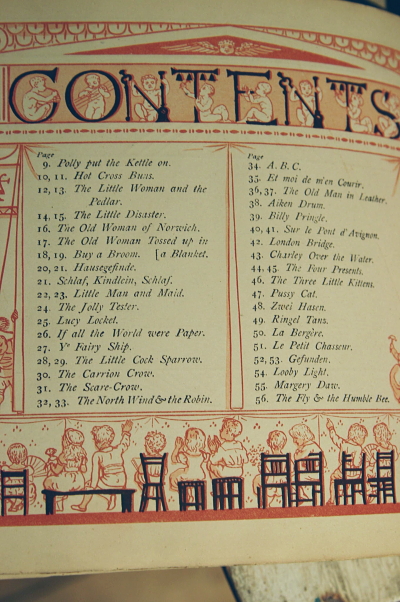 CONTENTS
Page
9. Polly put the Kettle on.
10, 11. Hot Cross Buns.
12, 13. The Little Woman and the
Pedlar.
14, 15. The Little Disaster.
16. The Old Woman of Norwich.
17. The Old Woman Tossed up in
18, 19. Buy a Broom. [a Blanket.
20, 21. Hausegefinde.
21. Schlaf, Kindlein, Schlaf.
22, 23. Little Man and Maid.
24. The Jolly Tester.
25. Lucy Locket.
26. If all the World were Paper.
27. Ye Fairy Ship.
28, 29. The Little Cock Sparrow.
30. The Carrion Crow.
31. The Scare-Crow.
32, 33. The North Wind & the Robin.
Page
34. A. B. C.
35. Et moi de m'en Courir.
36, 37. The Old Man in Leather.
38. Aiken Drum.
39. Billy Pringle.
40, 41. Sur le Pont d'Avignon.
42. London Bridge.
43. Charley Over the Water.
44, 45. The Four Presents.
46. The Three Little Kittens.
47. Pussy Cat.
48. Zwei Hasen.
49. Ringel Tans.
50. La Bergère.
51. Le Petit Chasseur.
52, 53. Gefunden.
54. Looby Light.
55. Margery Daw.
56. The Fly & the Humble Bee.